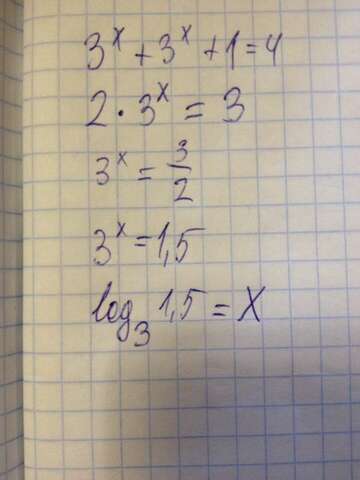 3ˣ + 3ˣ + 1 = 4
2 · 3ˣ = 3
3ˣ = 3/2
3ˣ = 1,5
log₃ 1,5 = x